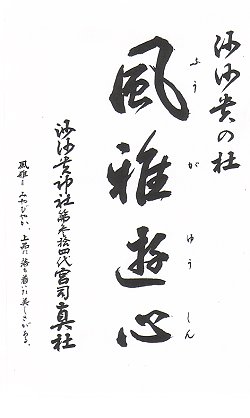 沙沙貴の杜
風雅遊心
ふうがゆうしん
沙沙貴神社第参拾四代宮司真社
風雅とみやびやか、上品に落ち着いた美しさがある。